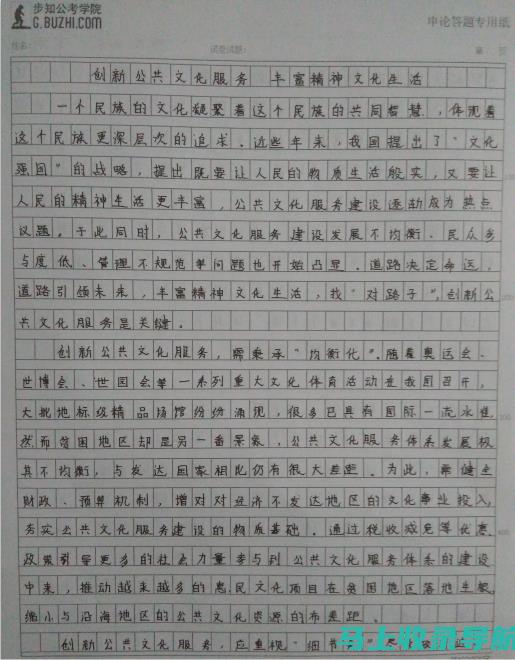 步知公考学院
G.BUZHI.COM
申论答题专用纸
姓名:
试卷试题:
第 页
创新公共文化服务 丰富精神文化生活
一个民族的文化凝聚着这个民族的共同智慧,体现着
这个民族更深层次的追求。近些年来,我国提出了“文化
强国”的战略,提出既要让人民的物质生活殷实,又要让
人民的精神生活更丰富,公共文化服务建设逐渐成为热点
议题。于此同时,公共文化服务建设发展不均衡、民众参
与度低、管理不规范等问题也开始凸显。道路决定命运,
道路引领未来,丰富精神文化生活,找“对路子”,创新公
共文化服务是关键。
创新公共文化服务,需秉承“均衡化”。随着奥运会、
世博会、世园会等一系列重大文化体育活动在我国召开,
大批地标级精品场馆纷纷涌现,很多已具有国际一流水准,
然而贫困地区却是另一番景象,公共文化服务体系发展极
其不均衡,与发达国家相比仍有很大差距。为此,需健全
财政、预算机制,增对对经济不发达地区的文化事业投入,
夯实公共文化服务建设的物质基础。通过税收减免等优惠
政策引导更多的社会力量参与到公共文化服务体系的建设
中来,推动越来越多的惠民文化项目在贫困地区落地生根,
缩小与沿海地区的公共文化资源的布差距。
创新公共文化服务,应重视“细节
马上收录导航